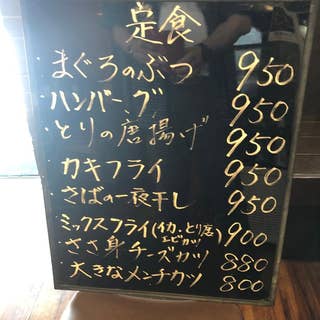 定食
・まぐろのぶつ 950
・ハンバーグ 950
・とりの唐揚げ 950
・カキフライ 950
・さばの一夜干し 950
・ミックスフライ(イカ、とり唐 エビカツ) 900
・ささ身チーズカツ 880
・大きなメンチカツ 800